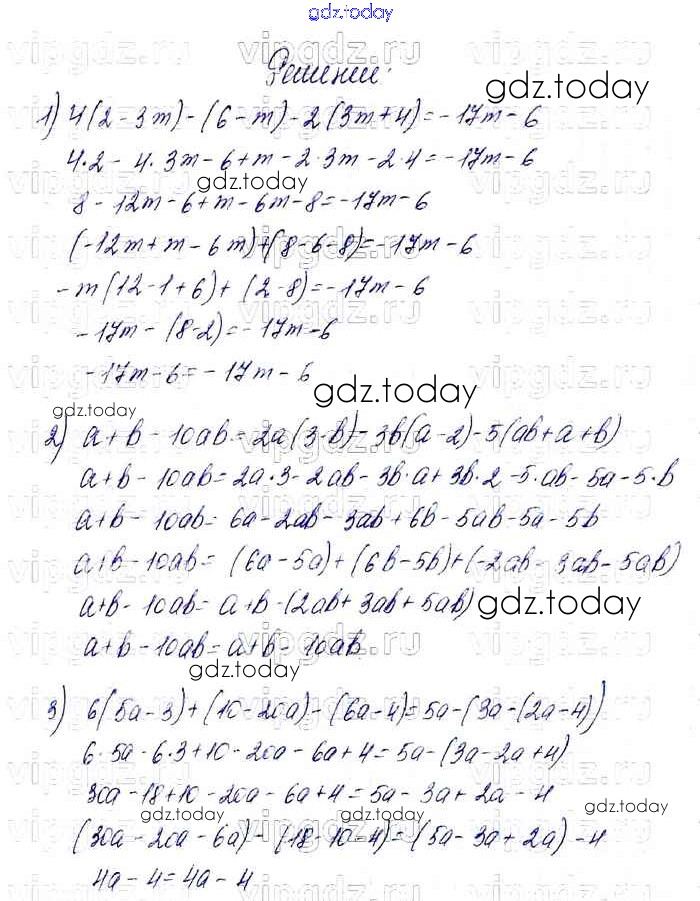 gdz.today
Решение:
1) 4(2-3m)-(6-m)-2(3m+4)=-17m-6
4·2-4·3m-6+m-2·3m-2·4=-17m-6
8-12m-6+m-6m-8=-17m-6
(-12m+m-6m)+(8-6-8)=-17m-6
-m(12-1+6)+(2-8)=-17m-6
-17m-(8-2)=-17m-6
-17m-6=-17m-6
2) a+b-10ab=2a(3-b)-3b(a-2)-5(ab+a+b)
a+b-10ab=2a·3-2ab-3b·a+3b·2-5·ab-5a-5·b
a+b-10ab=6a-2ab-3ab+6b-5ab-5a-5b
a+b-10ab=(6a-5a)+(6b-5b)+(-2ab-3ab-5ab)
a+b-10ab=a+b-(2ab+3ab+5ab)
a+b-10ab=a+b-10ab
3) 6(5a-3)+(10-20a)-(6a-4)=5a-(3a-(2a-4))
6·5a-6·3+10-20a-6a+4=5a-(3a-2a+4)
30a-18+10-20a-6a+4=5a-3a+2a-4
(30a-20a-6a)-(18-10-4)=(5a-3a+2a)-4
4a-4=4a-4